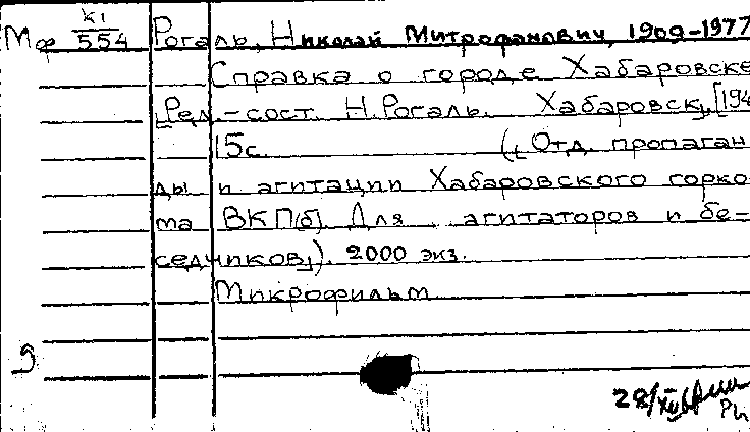 Мф К1/554 Рогаль, Николай Митрофанович, 1909-1977
Справка о городе Хабаровске
[Ред.-сост. Н.Рогаль. Хабаровск], [194
15с. ([Отд. пропаган-
ды и агитации Хабаровского горко-
ма ВКП(б). Для агитаторов и бе-
седчиков]). 2000 экз.
Микрофильм
28/XII